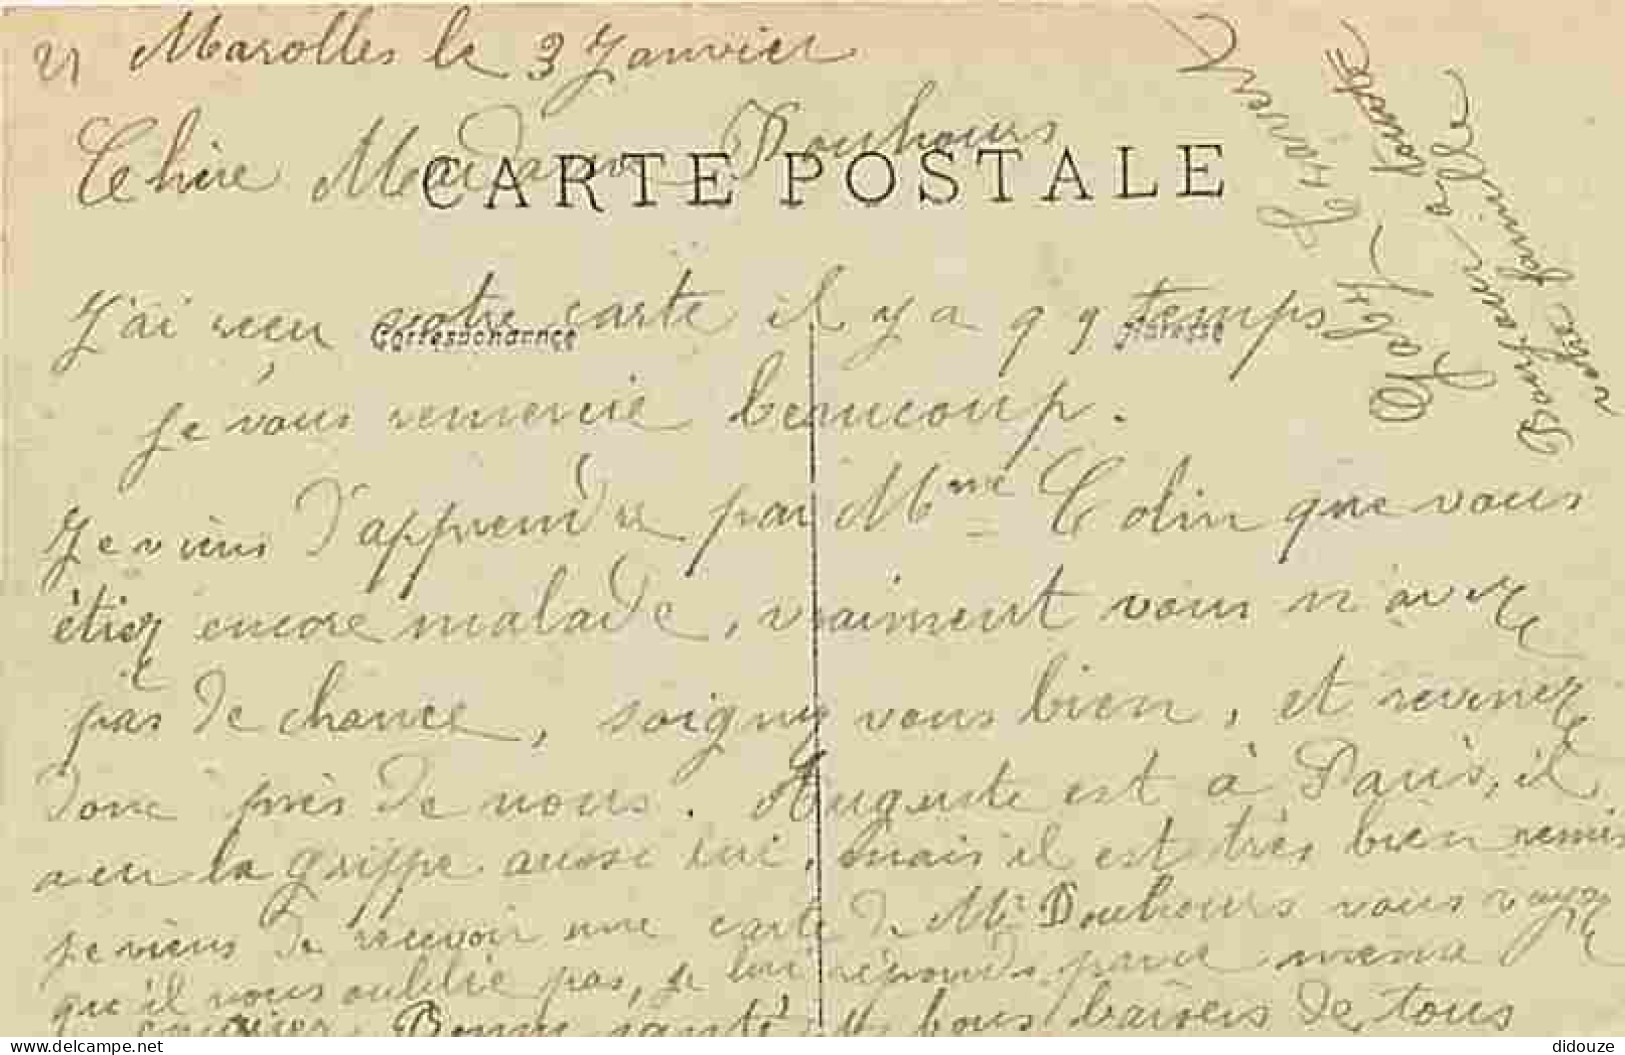 21 Marolles le 3 Janvier
Chère Madame Douhours
CARTE POSTALE
Correspondance
Adresse
J'ai reçu votre carte il y a q q temps
je vous remercie beaucoup.
Je viens d'apprendre par Mme Colin que vous
étiez encore malade, vraiment vous n'avez
pas de chance, soignez vous bien, et revenez
donc près de nous. Auguste est à Paris, il
a eu la grippe aussi lui, mais il est très bien remis
je viens de recevoir une carte de Mr Douhours vous voyez
qu'il nous oublie pas, je lui réponds par même
courrier. Bonne santé bons baisers de tous
Gaby
Bonjour à toute
votre famille
didouze